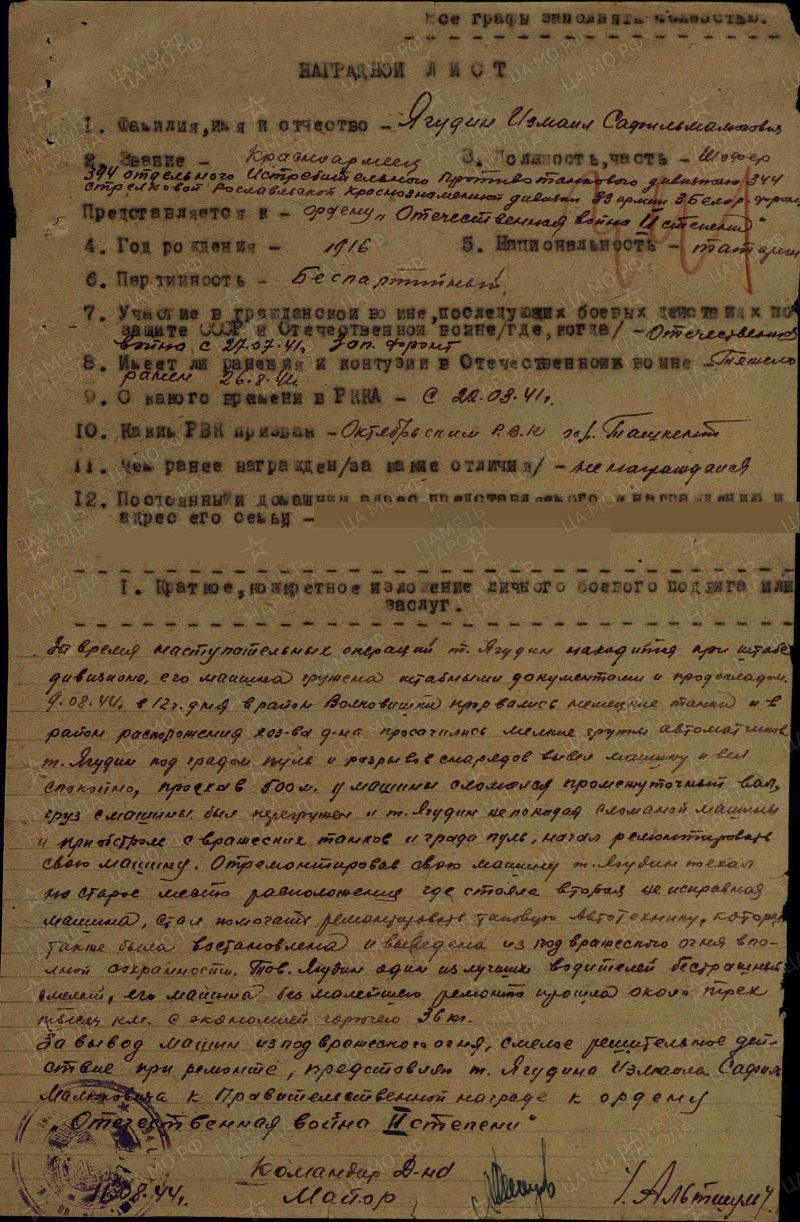 Все графы заполнять полностью.
НАГРАДНОЙ ЛИСТ
1. Фамилия, имя и отчество – Ягудин Измаил
2. Звание – Красноармеец 3. Должность, часть – Шофер
394 отдельного Истребительного Противотанкового дивизиона 344
стрелковой Рославльской Краснознаменной дивизии 33 армии 3 Белор. фронта
Представляется к – ордену „Отечественная война II степени"
4. Год рождения – 1916 5. Национальность – татарин
6. Партийность – Беспартийный
7. Участие в гражданской войне, последующих боевых действиях по
защите СССР и Отечественной войне /где, когда/ – Отечественная
война с 27.07.41. Зап. фронт
8. Имеет ли ранения и контузии в Отечественной войне – Тяжело
ранен 26.8.42.
9. С какого времени в РККА – С 22.03.41г.
10. Каким РВК призван – Октябрьским Р.В.К гор. Ташкент
11. Чем ранее награжден /за какие отличия/ – не награждался
12. Постоянный домашний адрес представляемого к награждению и
адрес его семьи –
I. Краткое, конкретное изложение личного боевого подвига или
заслуг.
За время наступательных операций т. Ягудин находится при штабе
дивизиона, его машина гружена штабными документами и
9.08.44г. в 12ч. дня в район Волковишки прорвались немецкие танки и в
район расположения хоз-ва д-на просочились мелкие группы автоматчиков
т. Ягудин под градом пуль и разрывов снарядов вывел машину и вел
спокойно, проехав 500м. у машины сломался промежуточный вал,
груз с машины был перегружен и т. Ягудин не покидая сломаной машины
и при обстреле с вражеских танков и града пуль, начал ремонтировать
свою машину. Отремонтировав свою машину т. Ягудин поехал
на старое место расположение где стояла вторая не исправная
машина, стал помогать ремонтировать таковую Автотехнику, которая
также была востановлена и выведена из под вражеского огня в по-
лной сохранности. Тов. Ягудин один из лучших водителей бестрашный
смелый, его машина без малейшего ремонта прошла около трех
тысяч км. с экономией горючего 36 кг.
За вывод машин из под вражеского огня, смелое решительное дей-
ствие при ремонте, представляю т. Ягудина Измаила
к Правительственной награде к ордену
„Отечественная война II степени"
Командир Д-на
16.08.44г. Майор